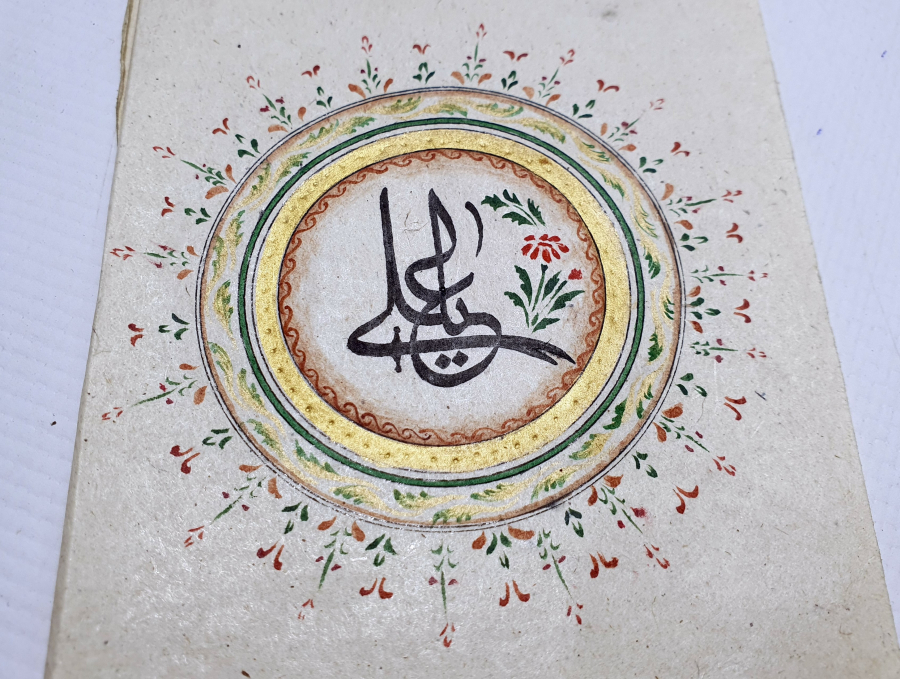 يا علي